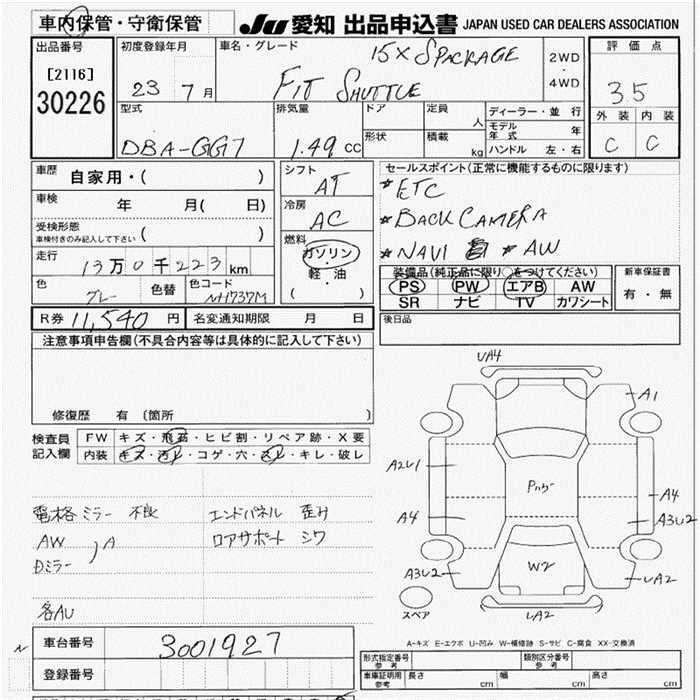 車内保管・守衛保管
JU 愛知 出品申込書 JAPAN USED CAR DEALERS ASSOCIATION
出品番号
[2116]
30226
初度登録年月
23 7月
車名・グレード
15X SPACKAGE
FIT SHUTTLE
2WD
・
4WD
評価点
3.5
外装 内装
C C
型式
DBA-GG7
排気量
1.49 CC
ドア
形状
定員
人
積載
kg
ディーラー・並行
モデル年式 年
ハンドル 左・右
車歴 自家用・( )
車検 年 月( 日)
受検形態
車検付きのみ記入して下さい ( )
走行
13万0千223km
色
グレー
色替
色コード
NH737M
シフト
AT
冷房
AC
燃料
ガソリン
・
軽・油
( )
セールスポイント(正常に機能するものに限ります)
*ETC
*BACK CAMERA
*NAVI *AW
装備品(純正品に限り○をつけてください)
PS PW エアB AW
SR ナビ TV カワシート
新車保証書
有・無
R券 11,540 円 名変通知期限 月 日
後日品
注意事項申告欄(不具合内容等は具体的に記入して下さい)
修復歴 有 (箇所 )
検査員記入欄
FW キズ・飛石・ヒビ割・リペア跡・X要
内装 キズ・汚レ・コゲ・穴・スレ・キレ・破レ
電格ミラー 不良
AW
Dミラー
A
各AU
エンドパネル 歪み
ロアサポート シワ
UA4
A1
A2U1
Pハゲ
A4
A4
A3U2
A3U2
W2
UA2
スペア
UA2
A-キズ E-エクボ U-凹み W-補修跡 S-サビ C-腐食 XX-交換済
N
車台番号 3001927
登録番号
形式指定番号
参考
類別区分番号
参考
車庫証明用
参考
長さ cm 幅 cm 高さ cm